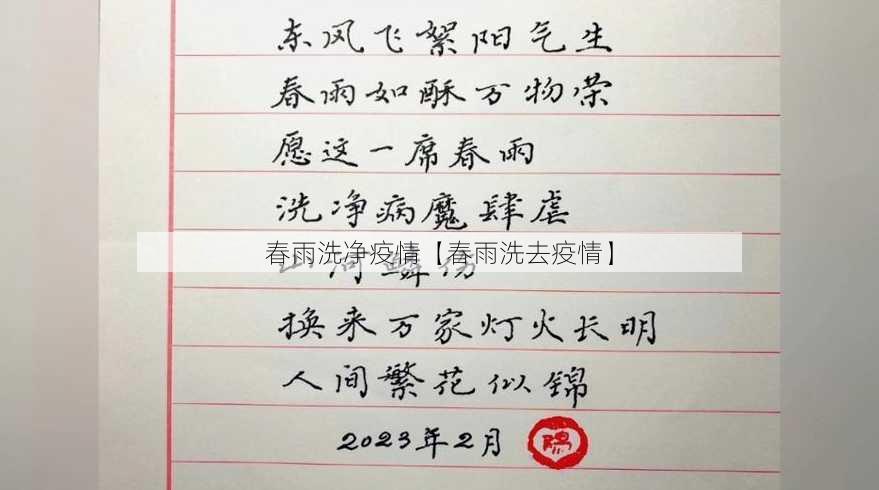 东风飞絮阳气生
春雨如酥万物荣
愿这一席春雨
洗净病魔肆虐
春雨洗净疫情【春雨洗去疫情】
换来万家灯火长明
人间繁花似锦
2023年2月